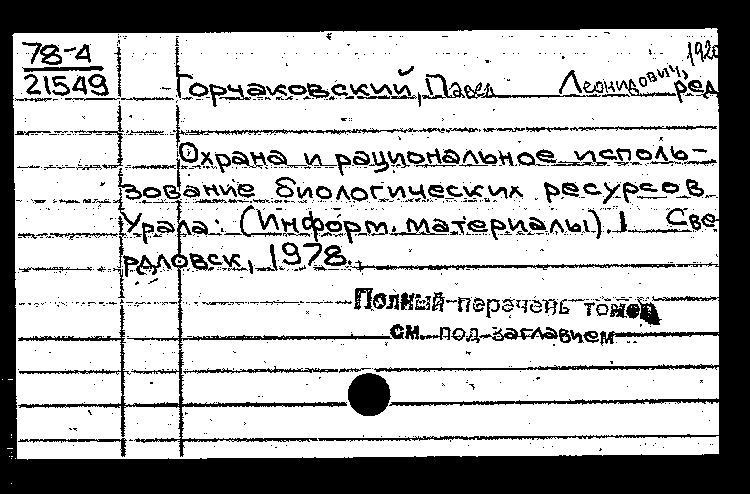 78-4
21549
Горчаковский, Павел Леонидович, 1920
ред
Охрана и рациональное исполь-
зование биологических ресурсов
Урала: (Информ. материалы). I Све-
рдловск, 1978.
Полный перечень томов
см. под заглавием